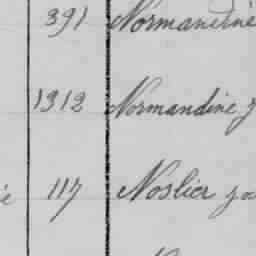 391 Normandine
1312 Normandine J
117 Noslier Ja